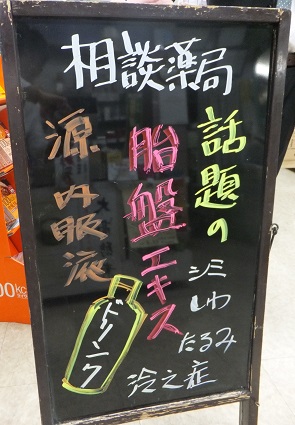 相談薬局
話題の
胎盤エキス
源内服液
ドリンク
シミ
しわ
たるみ
冷え症